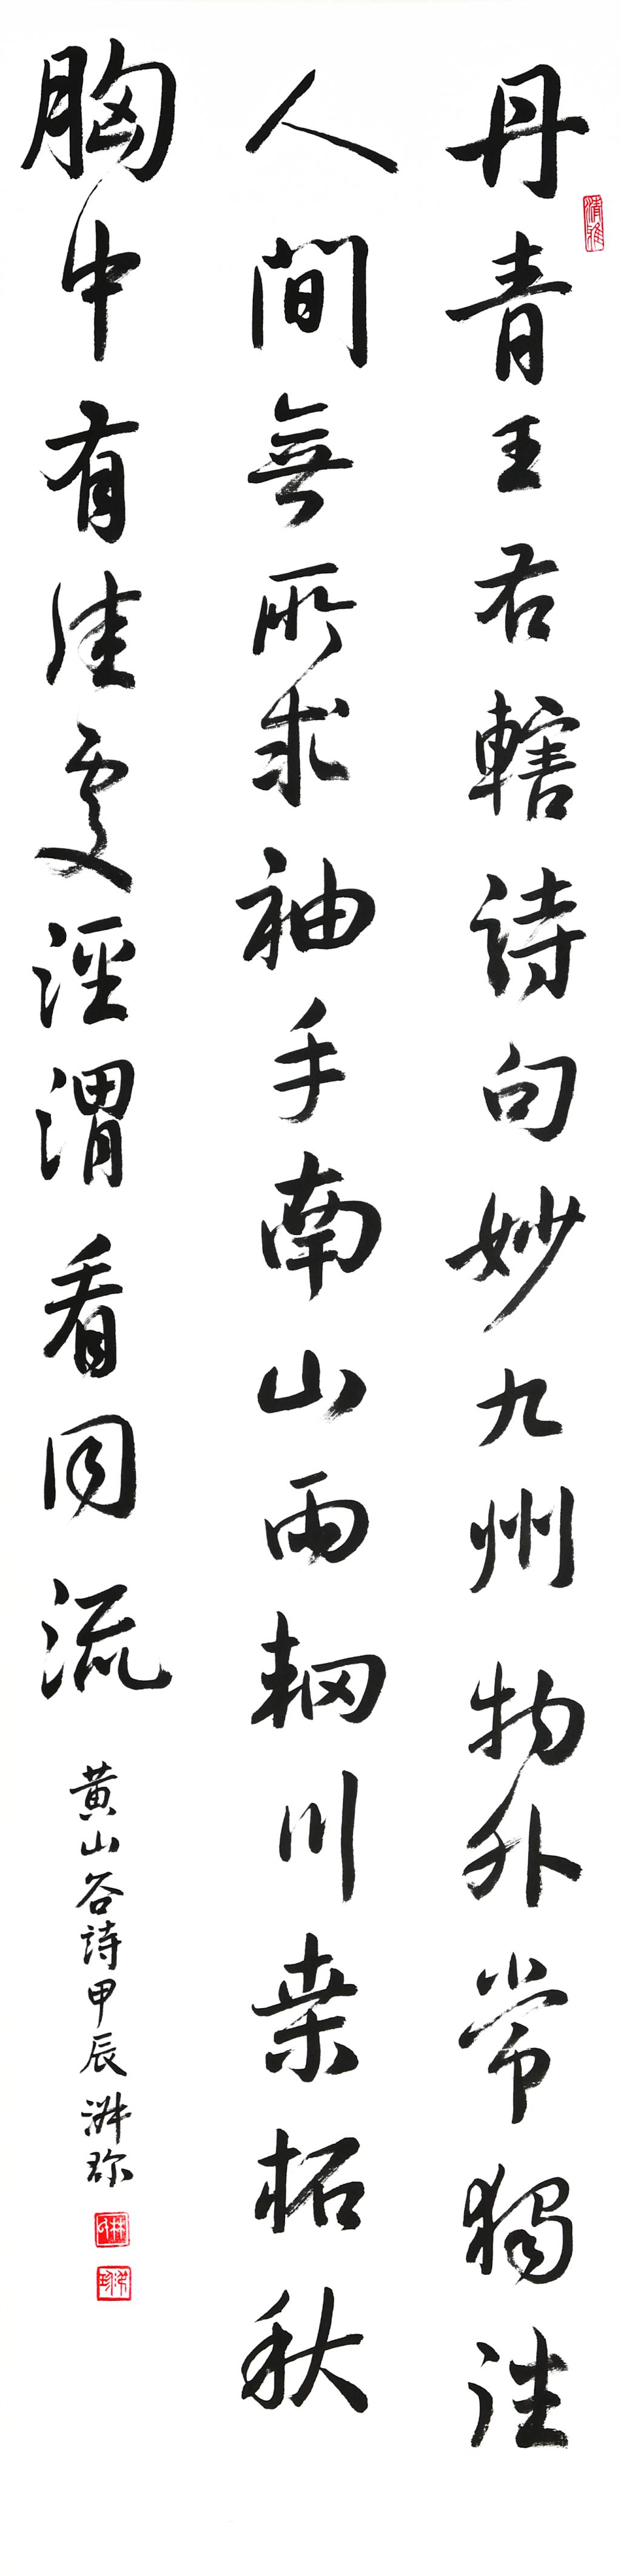 清雅
丹青王右轄詩句妙九州物外常獨往
人間無所求袖手南山雨輞川桑柘秋
胸中有佳處涇渭看同流
黄山谷詩甲辰